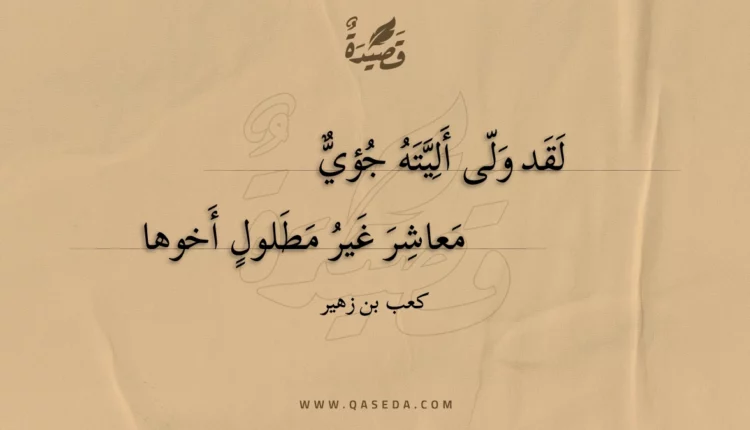 قَصِيدَةٌ
لَقَد وَلّى أَلِيَّتَهُ جُؤيٌّ
مَعاشِرَ غَيرُ مَطَلولٍ أَخوها
كعب بن زهير
WWW.QASEDA.COM